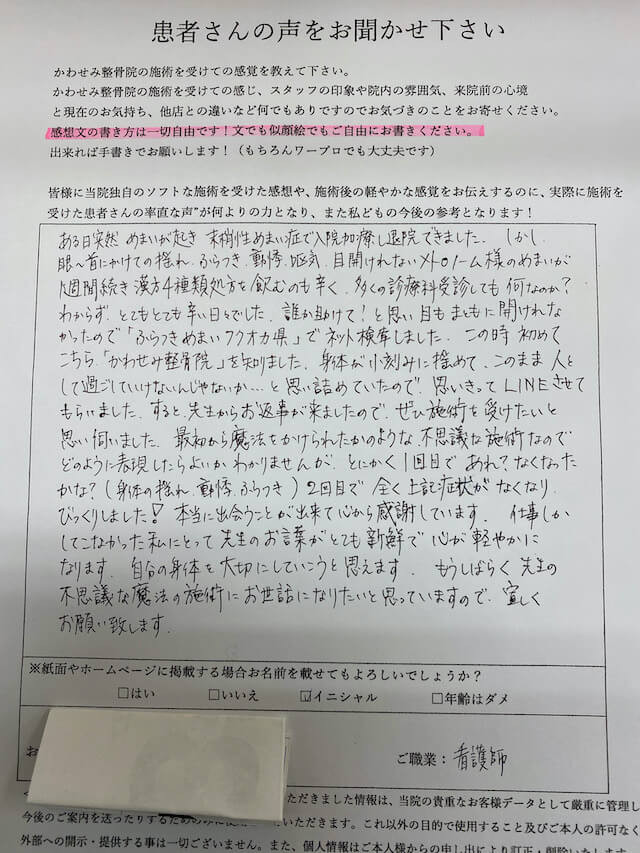 患者さんの声をお聞かせ下さい
かわせみ整骨院の施術を受けての感覚を教えて下さい。
かわせみ整骨院の施術を受けての感じ、スタッフの印象や院内の雰囲気、来院前の心境
と現在のお気持ち、他店との違いなど何でもありですのでお気づきのことをお寄せください。
感想文の書き方は一切自由です！文でも似顔絵でもご自由にお書きください。
出来れば手書きでお願いします！（もちろんワープロでも大丈夫です）
皆様に当院独自のソフトな施術を受けた感想や、施術後の軽やかな感覚をお伝えするのに、実際に施術を
受けた患者さんの率直な声”が何よりの力となり、また私どもの今後の参考となります！
ある日突然 めまいが起き 末梢性めまい症で入院加療し退院できました。しかし、
眼〜首にかけての揺れ、ふらつき、動悸、嘔気、目開けれないメトロノーム様のめまいが
1週間続き漢方4種類処方を飲むのも辛く、多くの診療科受診しても何なのか？
わからず、とてもとても辛い日々でした。誰か助けて！と思い目もまともに開けれな
かったので「ふらつきめまいフクオカ県」でネット検索しました。この時初めて
こちら「かわせみ整骨院」を知りました。身体が小刻みに揺めて、このまま人と
して過ごしていけないんじゃないか…と思い詰めていたので、思いきってLINEさせて
もらいました。すると、先生からお返事が来ましたので、ぜひ施術を受けたいと
思い伺いました。最初から魔法をかけられたかのような不思議な施術なので
どのように表現したらよいかわかりませんが、とにかく1回目であれ？なくなった
かな？（身体の揺れ、動悸、ふらつき）2回目で全く上記症状がなくなり
びっくりしました！本当に出会うことが出来て心から感謝しています。仕事しか
してこなかった私にとって先生のお言葉がとても新鮮で心が軽やかに
なります。自分の身体を大切にしていこうと思えます。もうしばらく先生の
不思議な魔法の施術にお世話になりたいと思っていますので、宜しく
お願い致します。
※紙面やホームページに掲載する場合お名前を載せてもよろしいでしょうか？
□はい □いいえ ☑イニシャル □年齢はダメ
お
ご職業：看護師
ただきました情報は、当院の貴重なお客様データとして厳重に管理し
今後のご案内を送ったりするため いただきます。これ以外の目的で使用すること及びご本人の許可なく
外部への開示・提供する事は一切ございません。また、個人情報はご本人様からの申し出により訂正・削除いたします